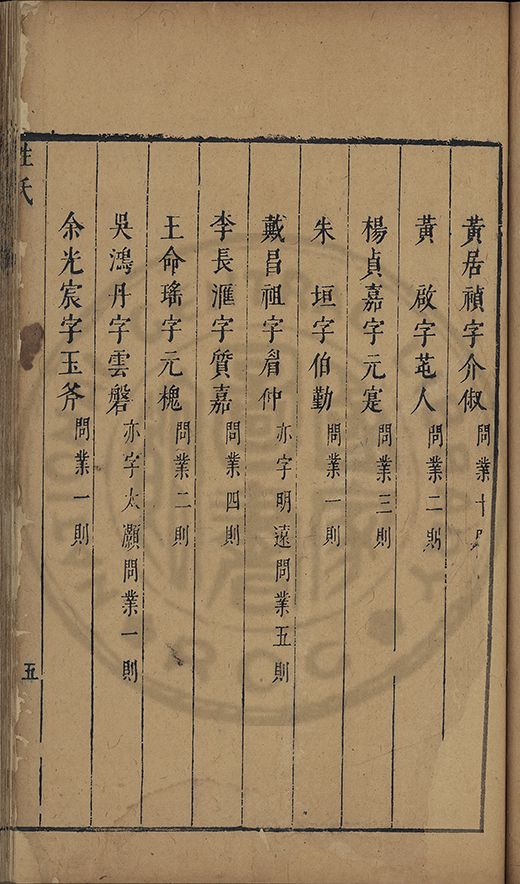 黃居禎字介俶問業十
黃　啟字芚人問業二則
楊貞嘉字元寔問業三則
朱　垣字伯勤問業一則
戴昌祖字眉仲亦字明遠問業五則
李長滙字質嘉問業四則
王命瑤字元槐問業二則
吳鴻丹字雲磐亦字太灝問業一則
余光宸字玉斧問業一則
姓氏
五